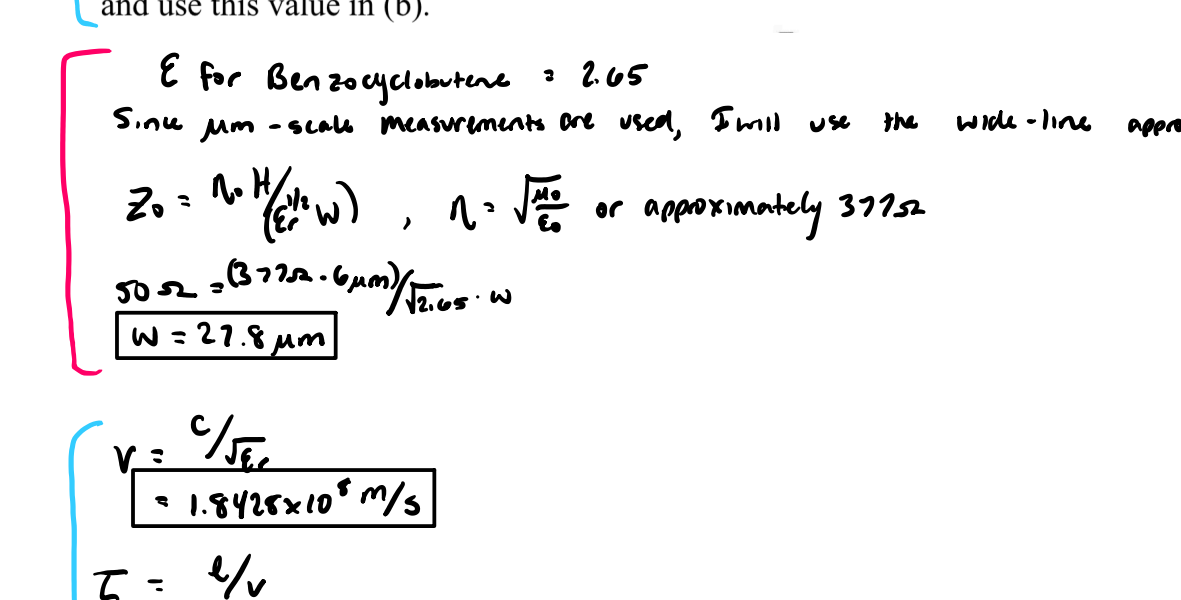 and use this value in (b).
ε for Benzocyclobutene = 2.65
Since μm-scale measurements are used, I will use the wide-line appro
Z₀ = η₀ H/(εr^1/2 W) , η = √(μ₀/ε₀) or approximately 377Ω
50 Ω = (377Ω · 6μm)/√2.65 · W
W = 27.8 μm
V = c/√εr
= 1.8428×10⁸ m/s
= l/v